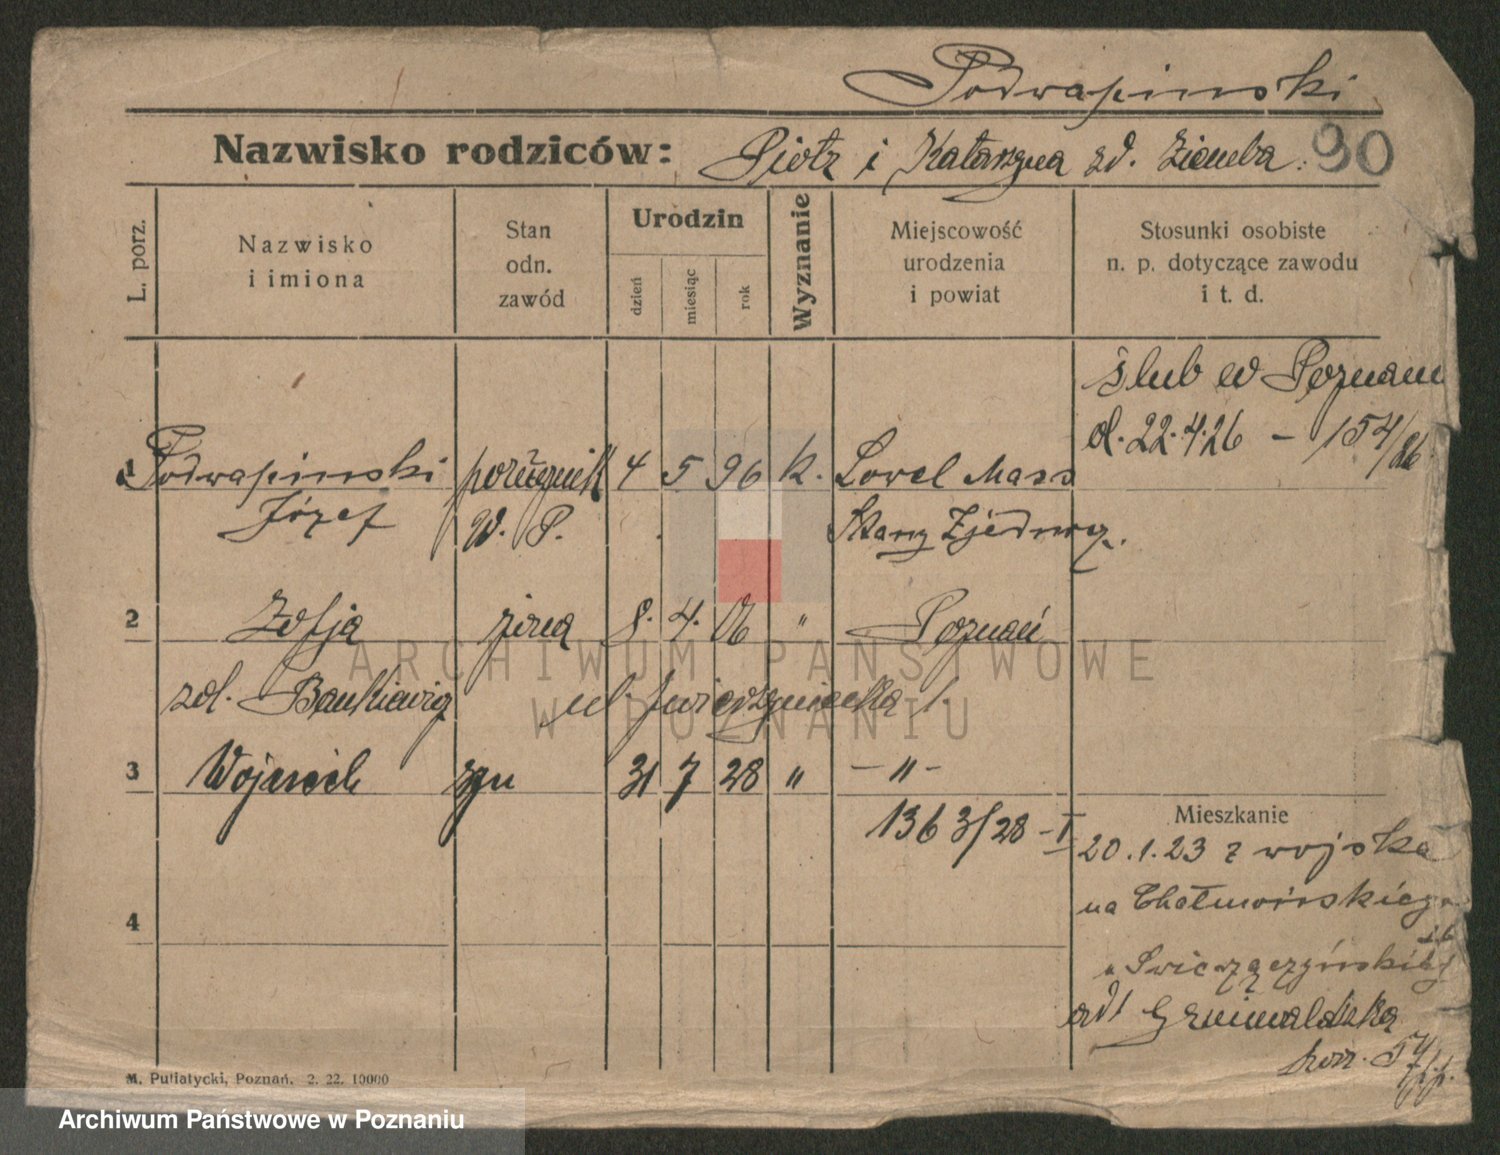 Podwapinski
Nazwisko rodziców: Piotr i Katarzyna zd. Ziemba. 90
L. porz.
Nazwisko i imiona
Stan odn. zawód
Urodzin
dzień miesiąc rok
Wyznanie
Miejscowość urodzenia i powiat
Stosunki osobiste n. p. dotyczące zawodu i t. d.
ślub w Poznaniu
d. 22.4.26 - 154/26
1 Podwapinski porucznik 4 5 96 k. Lovel Mass
Józef W. P. Stany Zjednocz.
2 Zofja żona 8. 4. 06 " Poznań
zd. Bankiewicz ul. 1.
3 Wojciech syn 31 7 28 " - " -
1363/28 - I
Mieszkanie
20.1.23 z wojska
na
4
Grunwaldzka
kosz.
M. Putiatycki, Poznań. 2. 22. 10000
ARCHIWUM PAŃSTWOWE
W POZNANIU
Archiwum Państwowe w Poznaniu